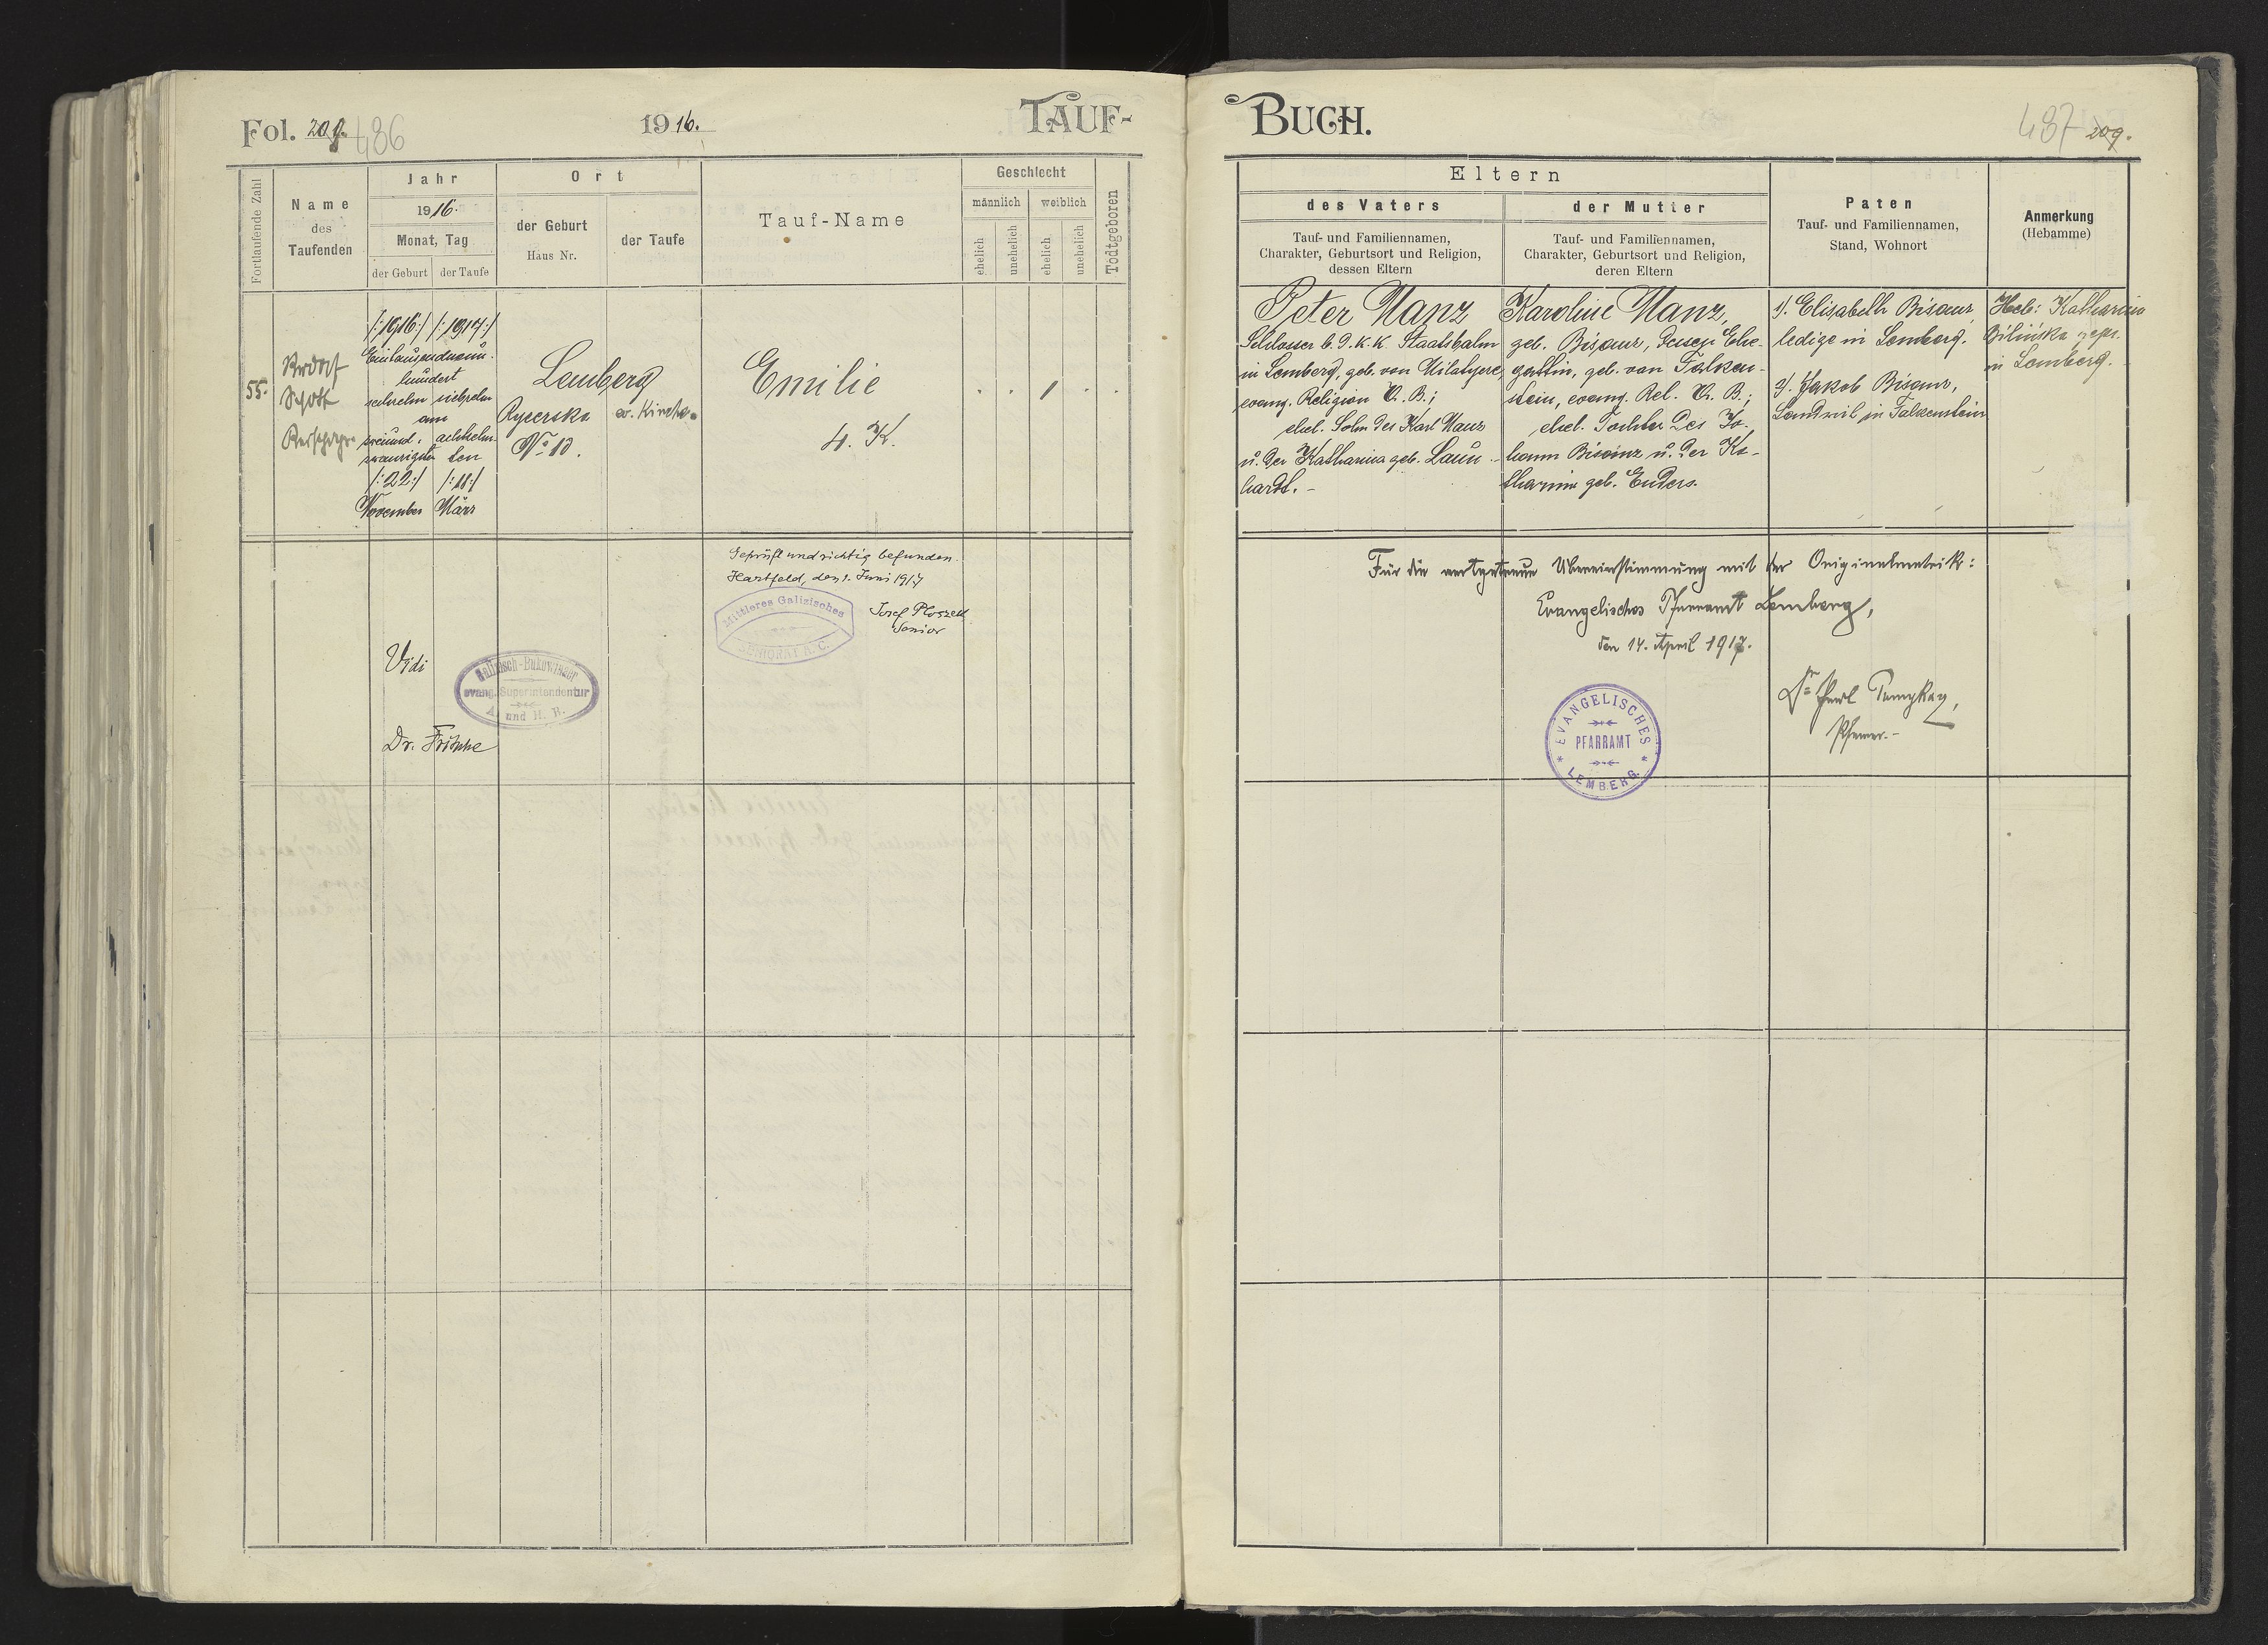 Fol. 209. 486
1916.
TAUF-
Fortlaufende Zahl
Name
des
Taufenden
Jahr
1916.
Monat, Tag
der Geburt
der Taufe
Ort
der Geburt
Haus Nr.
der Taufe
Tauf-Name
Geschlecht
männlich
weiblich
ehelich
unehelich
ehelich
unehelich
Todtgeboren
55.
Rudolf
/:1916:/ /:1917:/
Eintausendneun-
hundert
sechzehn siebzehn
am
zweiund- achtzehn-
zwanzigsten ten
/:22:/ /:18:/
November März
Lemberg
Rycerska
No 10.
ev. Kirche.
Emilie
4. K.
Geprüft und richtig befunden.
Hartfeld, den 1. Juni 1917
Mittleres Galizisches
SENIORAT A. C.
Josef Ploszek
Senior
Vidi
Galizisch-Bukowinaer
evang. Superintendentur
A. und H. B.
Dr. Fritsche
BUCH.
487 209.
Eltern
des Vaters
Tauf- und Familiennamen,
Charakter, Geburtsort und Religion,
dessen Eltern
der Mutter
Tauf- und Familiennamen,
Charakter, Geburtsort und Religion,
deren Eltern
Paten
Tauf- und Familiennamen,
Stand, Wohnort
Anmerkung
(Hebamme)
Peter Manz
Schlosser b. d. k. k. Staatsbahn
in Lemberg, geb. von
evang. Religion A. B.;
ehel. Sohn des Karl Manz
u. der Katharina geb. Laun-
hardt. -
Karoline Manz,
geb. Bisanz, dessen Ehe-
gattin, geb. von Falken-
stein, evang. Rel. A. B.;
ehel. Tochter des Jo-
hann Bisanz u. der Ka-
tharina geb. Enders.
1/. Elisabeth Bisanz,
ledige in Lemberg.
2/. Jakob Bisanz,
Landwirt in Falkenstein
Heb: Katharina
Bilińska gepr.
in Lemberg.
Für die wortgetreue Übereinstimmung mit der Originalmatrik:
Evangelisches Pfarramt Lemberg,
den 14. April 1917.
EVANGELISCHES
PFARRAMT
LEMBERG
Pfarrer.-